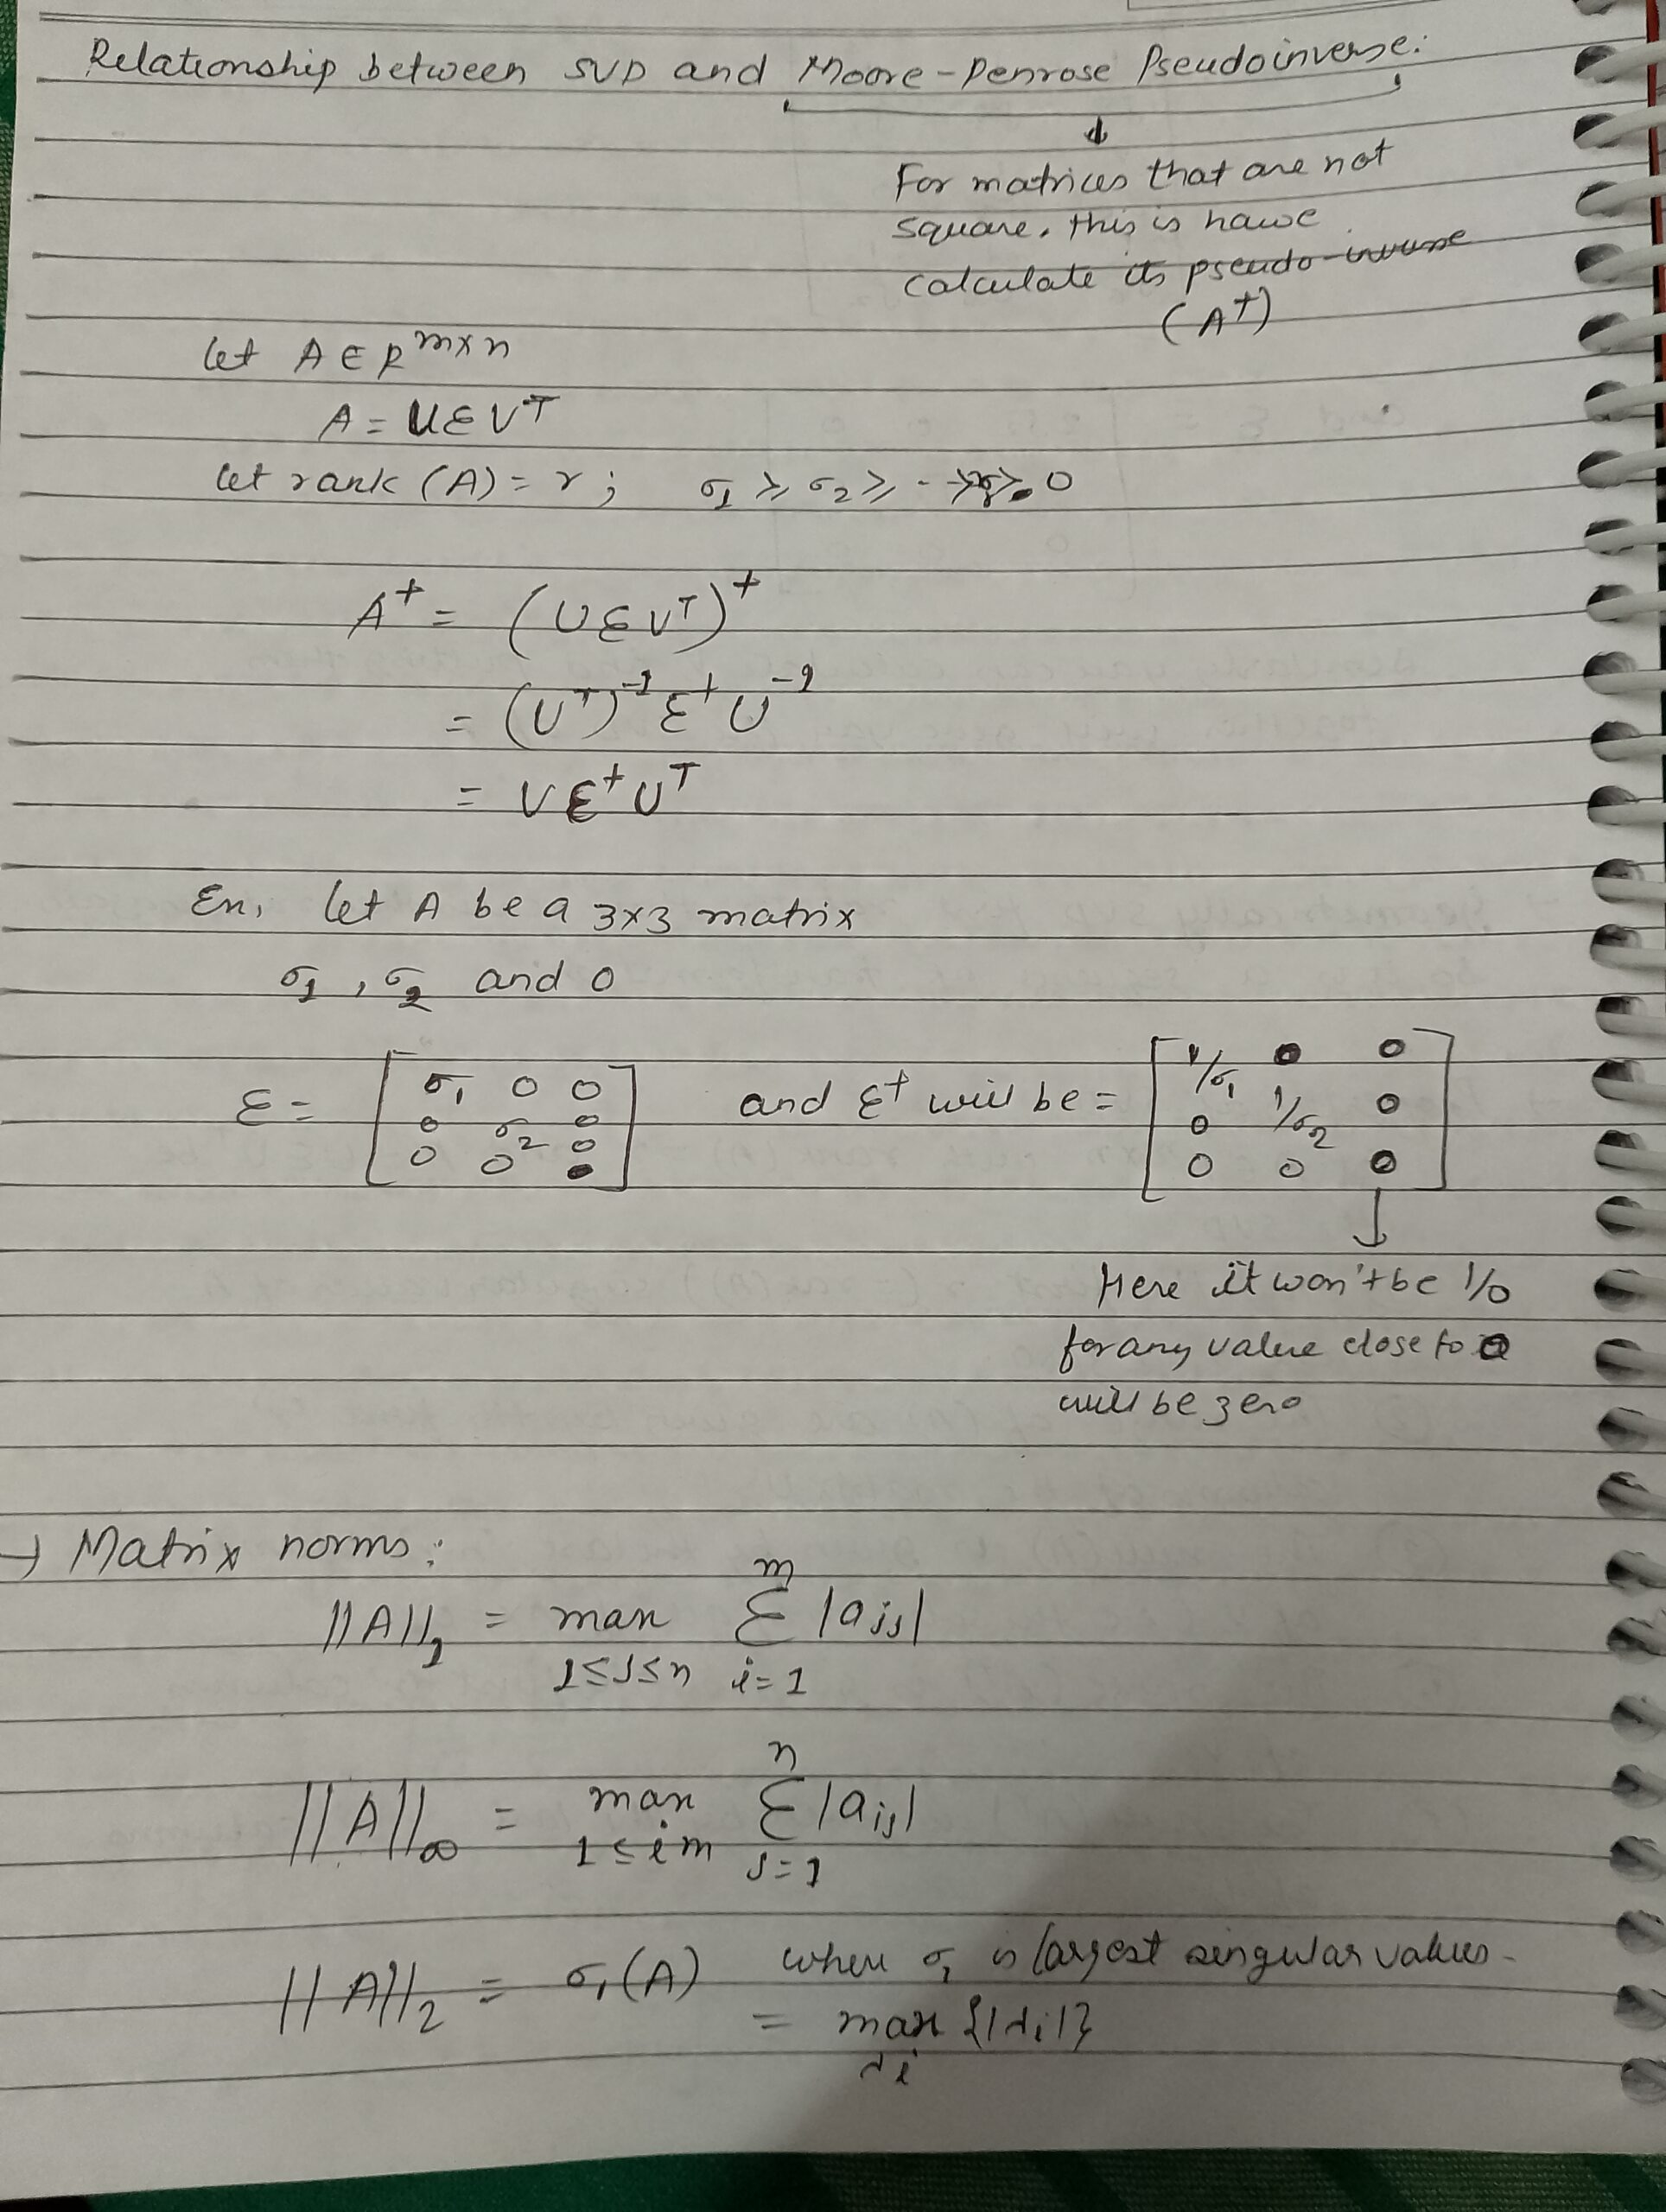 Relationship between SVD and Moore-Penrose Pseudoinverse:
↓
For matrices that are not
square, this is hawe
calculate its pseudo-inverse
(A⁺)
let A ∈ R^{m×n}
A = UΣV^T
let rank (A) = r ; σ₁ ≥ σ₂ ≥ - - 0
A⁺ = (UΣV^T)⁺
= (V^T)⁻¹ Σ⁺ U⁻¹
= VΣ⁺U^T
En. let A be a 3×3 matrix
σ₁, σ₂ and 0
Σ = [ σ₁ 0 0 and Σ⁺ will be = [ 1/σ₁ 0 0
0 σ₂ 0 0 1/σ₂ 0
0 0 0 ] 0 0 0 ]
↓
Here it won't be 1/0
for any value close to 0
will be zero
→ Matrix norms:
||A||₁ = max_{1≤j≤n} Σ_{i=1}^{m} |aᵢⱼ|
||A||∞ = max_{1≤i m} Σ_{j=1}^{n} |aᵢⱼ|
||A||₂ = σ₁(A) where σ₁ is largest singular values -
= max_{λᵢ} {|λᵢ|}